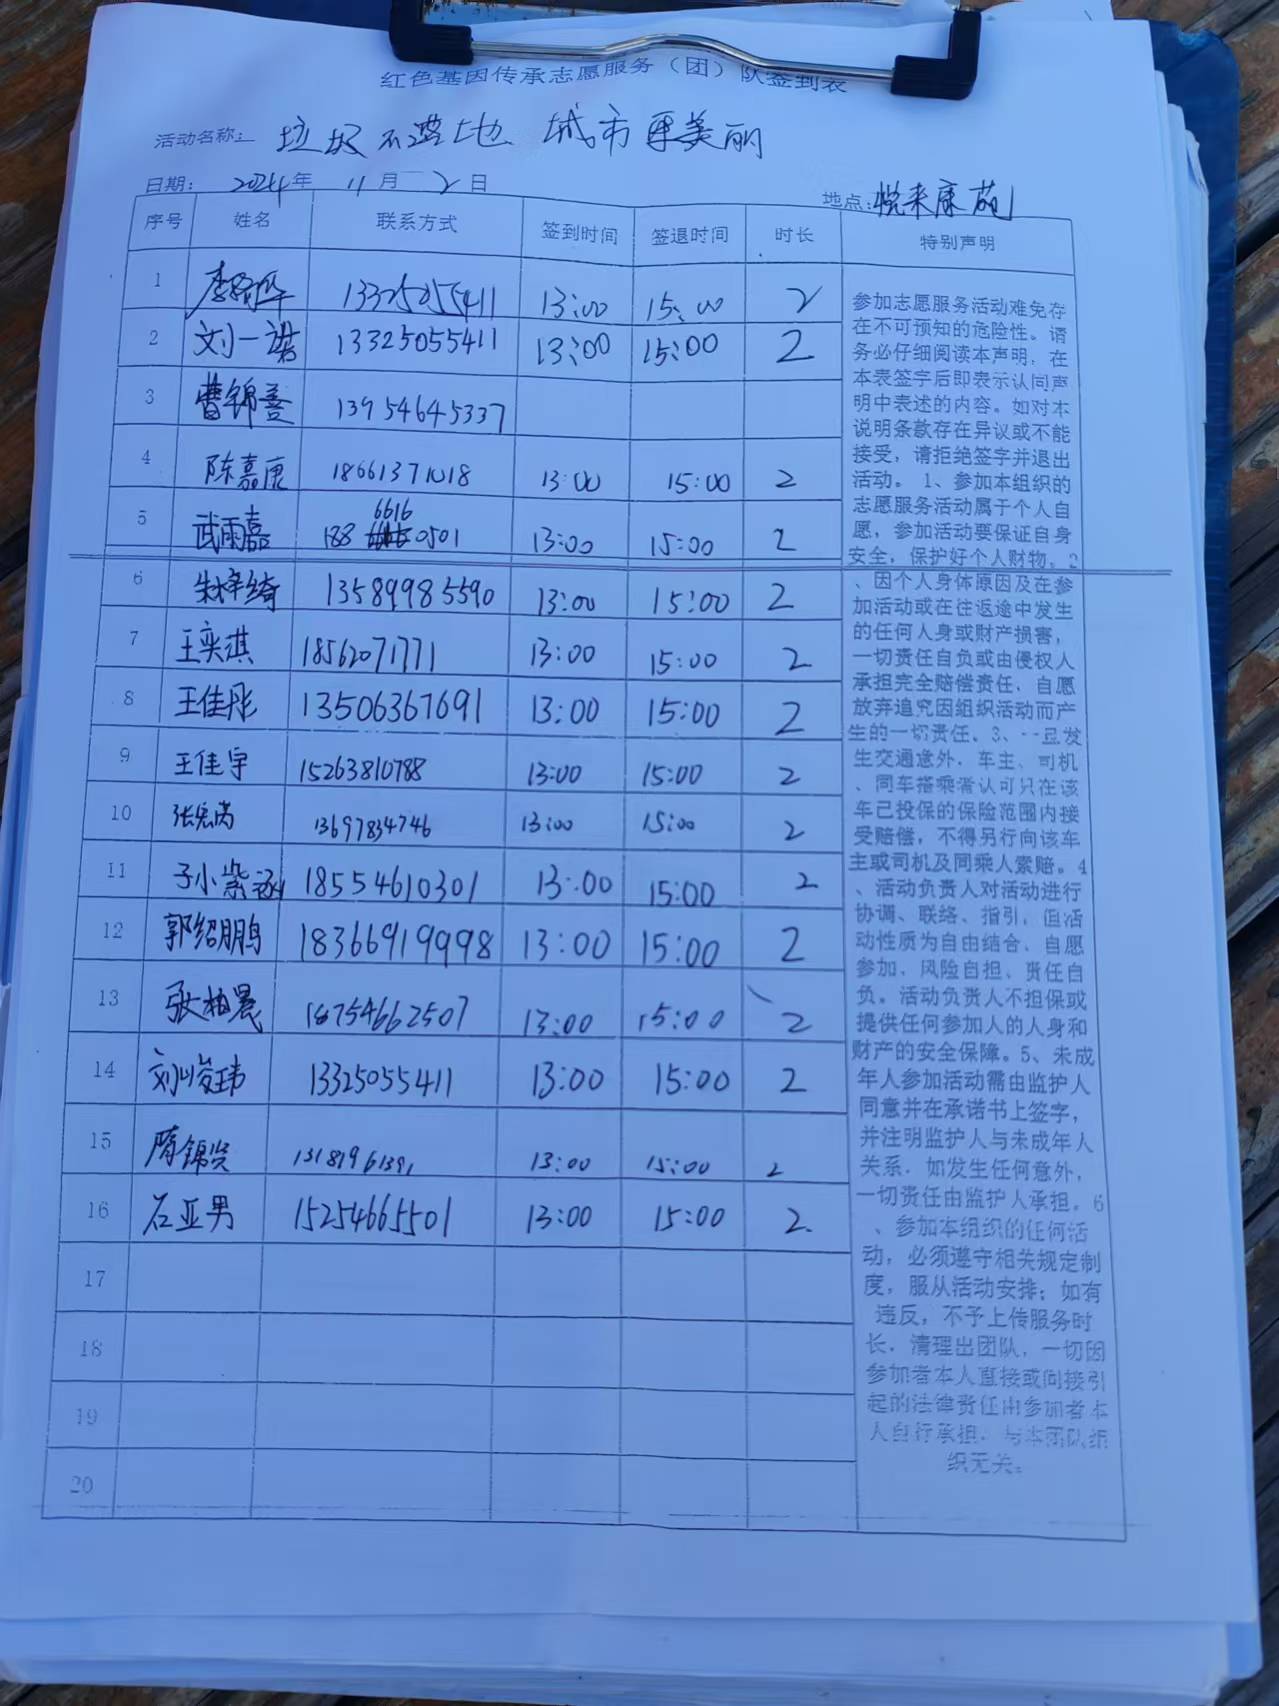 红色基因传承志愿服务（团）队签到表
活动名称： 垃圾不落地 城市更美丽
日期： 2024年 11月 2日
地点：悦来康苑
序号 姓名 联系方式 签到时间 签退时间 时长 特别声明
1 13325055411 13:00 15:00 2
2 刘一诺 13325055411 13:00 15:00 2
3 曹锦善 13954645337
4 陈嘉康 18661371018 13:00 15:00 2
6616
5 武雨嘉 188 0501 13:00 15:00 2
6 13589985590 13:00 15:00 2
7 王奕淇 18562071771 13:00 15:00 2
8 王佳彤 13506367691 13:00 15:00 2
9 王佳宇 15263810788 13:00 15:00 2
10 13697834746 13:00 15:00 2
11 子小紫涵 18554610301 13:00 15:00 2
12 郭绍鹏 18366919998 13:00 15:00 2
13 张柏晨 18754662507 13:00 15:00 2
14 13325055411 13:00 15:00 2
15 13181961391 13:00 15:00 2
16 石亚男 15254665501 13:00 15:00 2.
17
18
19
20
参加志愿服务活动难免存
在不可预知的危险性。请
务必仔细阅读本声明，在
本表签字后即表示认同声
明中表述的内容。如对本
说明条款存在异议或不能
接受，请拒绝签字并退出
活动。 1、参加本组织的
志愿服务活动属于个人自
愿，参加活动要保证自身
安全，保护好个人财物。2
、因个人身体原因及在参
加活动或在往返途中发生
的任何人身或财产损害，
一切责任自负或由侵权人
承担完全赔偿责任，自愿
放弃追究因组织活动而产
生的一切责任。3、一旦发
生交通意外，车主、司机
、同车搭乘者认可只在该
车已投保的保险范围内接
受赔偿，不得另行向该车
主或司机及同乘人索赔。4
、活动负责人对活动进行
协调、联络、指引，但活
动性质为自由结合、自愿
参加、风险自担、责任自
负。活动负责人不担保或
提供任何参加人的人身和
财产的安全保障。5、未成
年人参加活动需由监护人
同意并在承诺书上签字，
并注明监护人与未成年人
关系，如发生任何意外，
一切责任由监护人承担。6
、参加本组织的任何活
动，必须遵守相关规定制
度，服从活动安排；如有
违反，不予上传服务时
长，清理出团队，一切因
参加者本人直接或间接引
起的法律责任由参加者本
人自行承担，与本团队组
织无关。